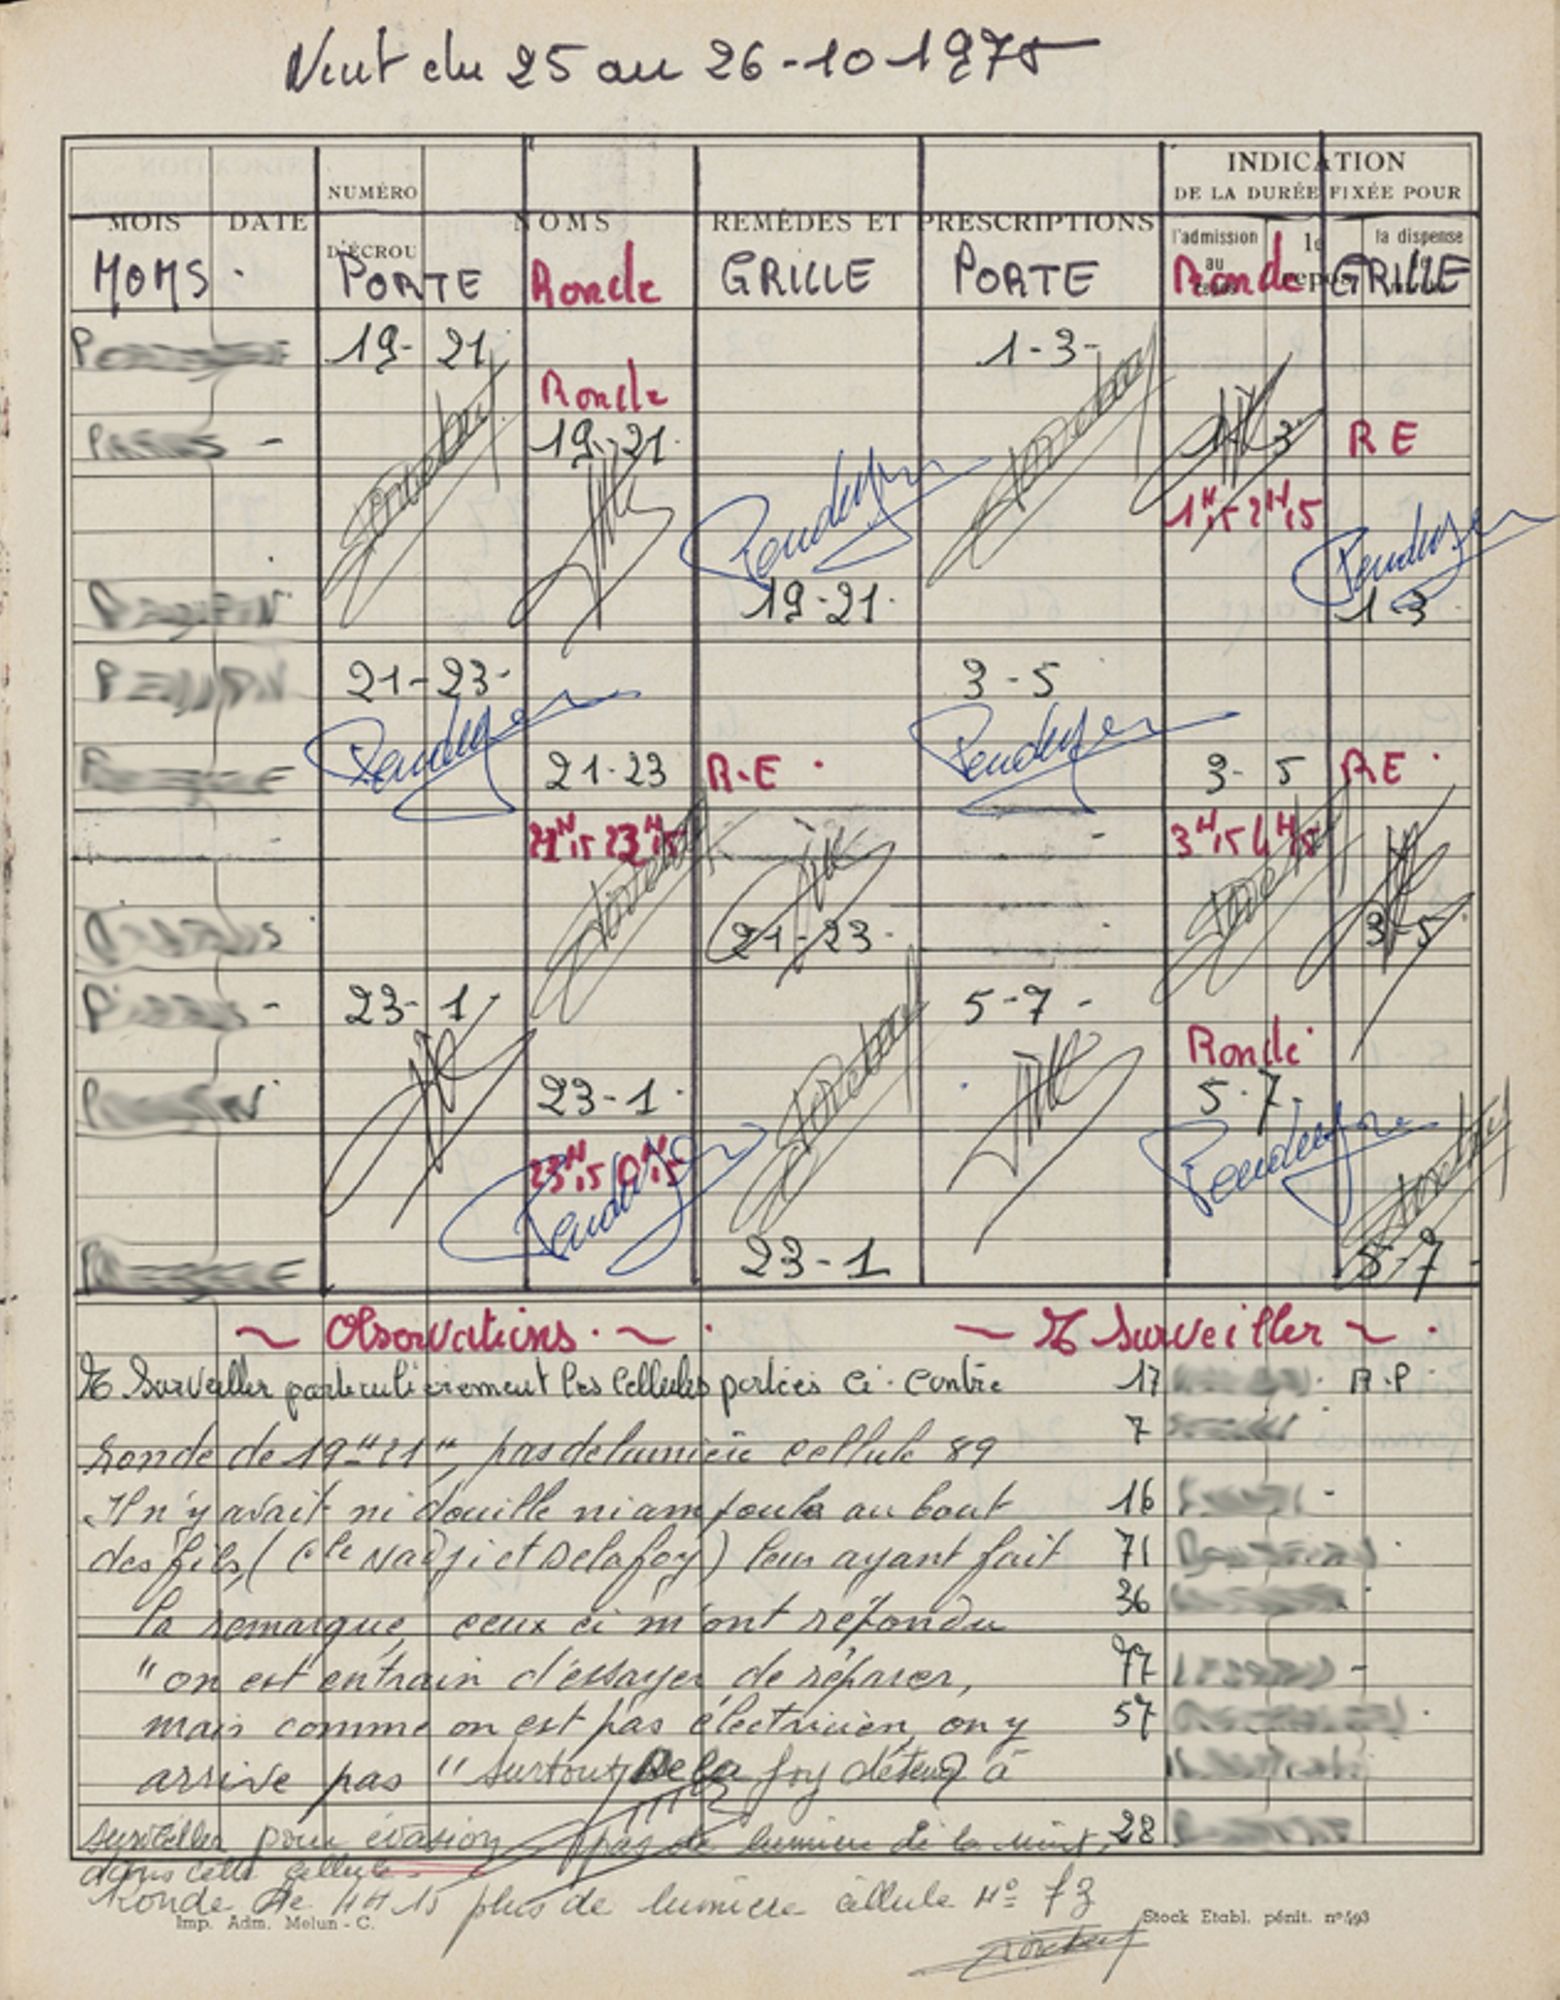 Nuit du 25 au 26-10-1975
INDICATION
DE LA DURÉE FIXÉE POUR
NUMÉRO
D'ÉCROU
MOIS DATE NOMS REMÈDES ET PRESCRIPTIONS
l'admission au le repos la dispense
NOMS. PORTE Ronde GRILLE PORTE Ronde GRILLE
19-21 1-3-
Ronde
19-21. 1-3 RE
1H15 2H15
19-21. 1-3
21-23- 3-5
21-23 R-E 3-5 RE
21H15 23H15 3H15 4H15
21-23 3-5
23-1 5-7-
Ronde
23-1. 5-7-
23H15 0H15
23-1 5-7
~ Observations ~ ~ A Surveiller ~
A Surveiller particulièrement les Cellules portées ci-contre 17 R.P.
Ronde de 19H 21H, pas de lumière cellule 89 7
Il n'y avait ni douille ni ampoule au bout 16
des fils, (Cle Nadji et Delafoy) leur ayant fait 71
la remarque, ceux ci m'ont répondu 36
"on est entrain d'essayer de réparer, 77
mais comme on est pas électricien, on y 57
arrive pas" Surtout Dela foy détenu à
surveiller pour évasion pas de lumière de la nuit, 28
dans cette cellule.
Ronde de 4H15 plus de lumière cellule No 73
Imp. Adm. Melun - C. Stock Etabl. pénit. n° 493